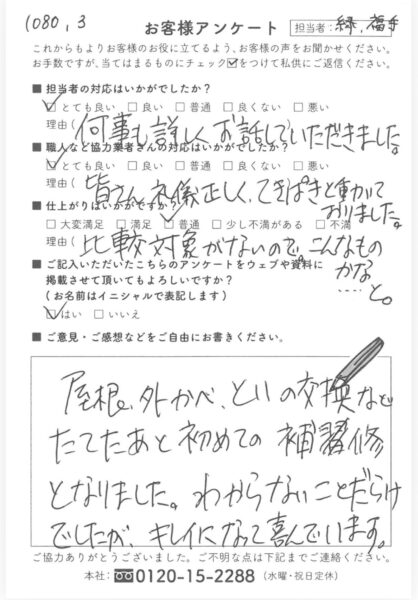 1080,3
お客様アンケート 担当者: 緑、福手
これからもよりお客様のお役に立てるよう、お客様の声をお聞かせください。
お手数ですが、当てはまるものにチェック☑をつけて私供にご返信ください。
■ 担当者の対応はいかがでしたか?
☑とても良い □良い □普通 □良くない □悪い
理由( 何事も詳しくお話していただきました。
■ 職人など協力業者さんの対応はいかがでしたか?
☑とても良い □良い □普通 □良くない □悪い
理由( 皆さん礼儀正しく、てきぱきと動かれて
おりました。
■ 仕上がりはいかがですか?
□大変満足 □満足 ☑普通 □少し不満がある □不満
理由( 比較対象がないので、こんなもの
かな
…と。
■ ご記入いただいたこちらのアンケートをウェブや資料に
掲載させて頂いてもよろしいですか?
(お名前はイニシャルで表記します)
☑はい □いいえ
■ ご意見・ご感想などをご自由にお書きください。
屋根、外かべ、といの交換など
たてたあと初めての補修
となりました。わからないことだらけ
でしたが、キレイになって喜んでいます。
ご協力ありがとうございました。ご不明な点は下記までご連絡ください。
本社: 0120-15-2288 (水曜・祝日定休)